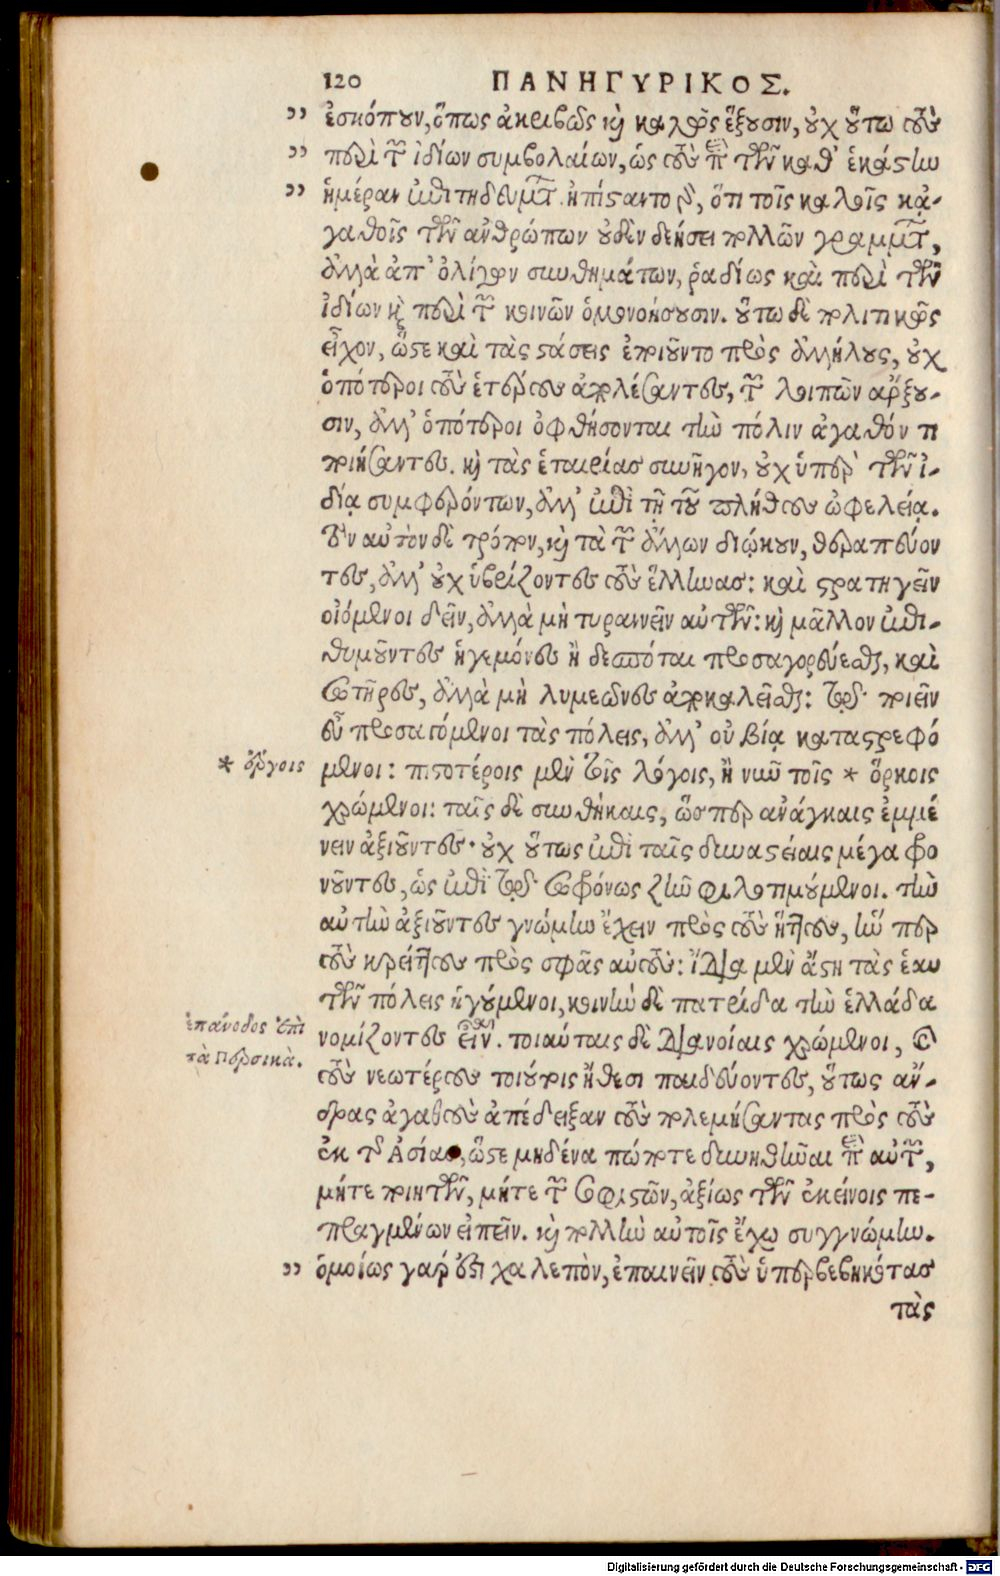 120 ΠΑΝΗΓΥΡΙΚΟΣ.
ἐσκόπουν, ὅπως ἀκριβῶς καὶ καλῶς ἕξουσιν, οὐχ οὕτω τοὺς
περὶ τῶν ἰδίων συμβολαίων, ὡς τοὺς περὶ τῶν καθ' ἑκάστην
ἡμέραν ἐπιτηδευμάτων. ἠπίσαντο γὰρ, ὅτι τοῖς καλοῖς κἀ-
γαθοῖς τῶν ἀνθρώπων οὐδὲν δεήσει πολλῶν γραμμάτων,
ἀλλὰ ἀπ' ὀλίγων συνθημάτων, ῥαδίως καὶ περὶ τῶν
ἰδίων καὶ περὶ τῶν κοινῶν ὁμονοήσουσιν. οὕτω δὲ πολιτικῶς
εἶχον, ὥστε καὶ τὰς στάσεις ἐποιοῦντο πρὸς ἀλλήλους, οὐχ
ὁπότεροι τοὺς ἑτέρους ἀπολέσαντες, τῶν λοιπῶν ἄρξου-
σιν, ἀλλ' ὁπότεροι ὀφθήσονται τὴν πόλιν ἀγαθόν τι
ποιήσαντες. καὶ τὰς ἑταιρίας συνῆγον, οὐχ ὑπὲρ τῶν ἰ-
δίᾳ συμφερόντων, ἀλλ' ἐπὶ τῇ τοῦ πλήθους ὠφελείᾳ.
τὸν αὐτὸν δὲ τρόπον, καὶ τὰ τῶν ἄλλων διῴκουν, θεραπεύον
τες, ἀλλ' οὐχ ὑβρίζοντες τοὺς ἕλληνας: καὶ στρατηγεῖν
οἰόμενοι δεῖν, ἀλλὰ μὴ τυραννεῖν αὐτῶν: καὶ μᾶλλον ἐπι-
θυμοῦντες ἡγεμόνες ἢ δεσπόται προσαγορεύεσθαι, καὶ
σωτῆρες, ἀλλὰ μὴ λυμεῶνες ἀποκαλεῖσθαι: τῷ ποιεῖν
εὖ προσαγόμενοι τὰς πόλεις, ἀλλ' οὐ βίᾳ καταστρεφό
* ὅργοις
μενοι: πιστοτέροις μὲν τοῖς λόγοις, ἢ νῦν τοῖς * ὅρκοις
χρώμενοι: ταῖς δὲ συνθήκαις, ὥσπερ ἀνάγκαις ἐμμέ
νειν ἀξιοῦντες· οὐχ οὕτως ἐπὶ ταῖς δυναστείαις μέγα φρο
νοῦντες, ὡς ἐπὶ τῷ σωφρόνως ζῆν φιλοτιμούμενοι. τὴν
αὐτὴν ἀξιοῦντες γνώμην ἔχειν πρὸς τοὺς ἥττους, ἥν περ
τοὺς κρείττους πρὸς σφᾶς αὐτούς: ἴδια μὲν ἄστη τὰς ἑαυ
τῶν πόλεις ἡγούμενοι, κοινὴν δὲ πατρίδα τὴν ἑλλάδα
ἐπάνοδος ἐπὶ
τὰ Περσικὰ.
νομίζοντες εἶναι. τοιαύταις δὲ διανοίαις χρώμενοι, καὶ
τοὺς νεωτέρους τοιούτοις ἤθεσι παιδεύοντες, οὕτως ἄν-
δρας ἀγαθοὺς ἀπέδειξαν τοὺς πολεμήσαντας πρὸς τοὺς
ἐκ τῆς Ἀσίας, ὥστε μηδένα πώποτε δυνηθῆναι περὶ αὐτῶν,
μήτε ποιητῶν, μήτε τῶν σοφιστῶν, ἀξίως τῶν ἐκείνοις πε-
πραγμένων εἰπεῖν. καὶ πολλὴν αὐτοῖς ἔχω συγγνώμην.
ὁμοίως γάρ ἐστι χαλεπὸν, ἐπαινεῖν τοὺς ὑπερβεβηκότας
τὰς
Digitalisierung gefördert durch die Deutsche Forschungsgemeinschaft - DFG